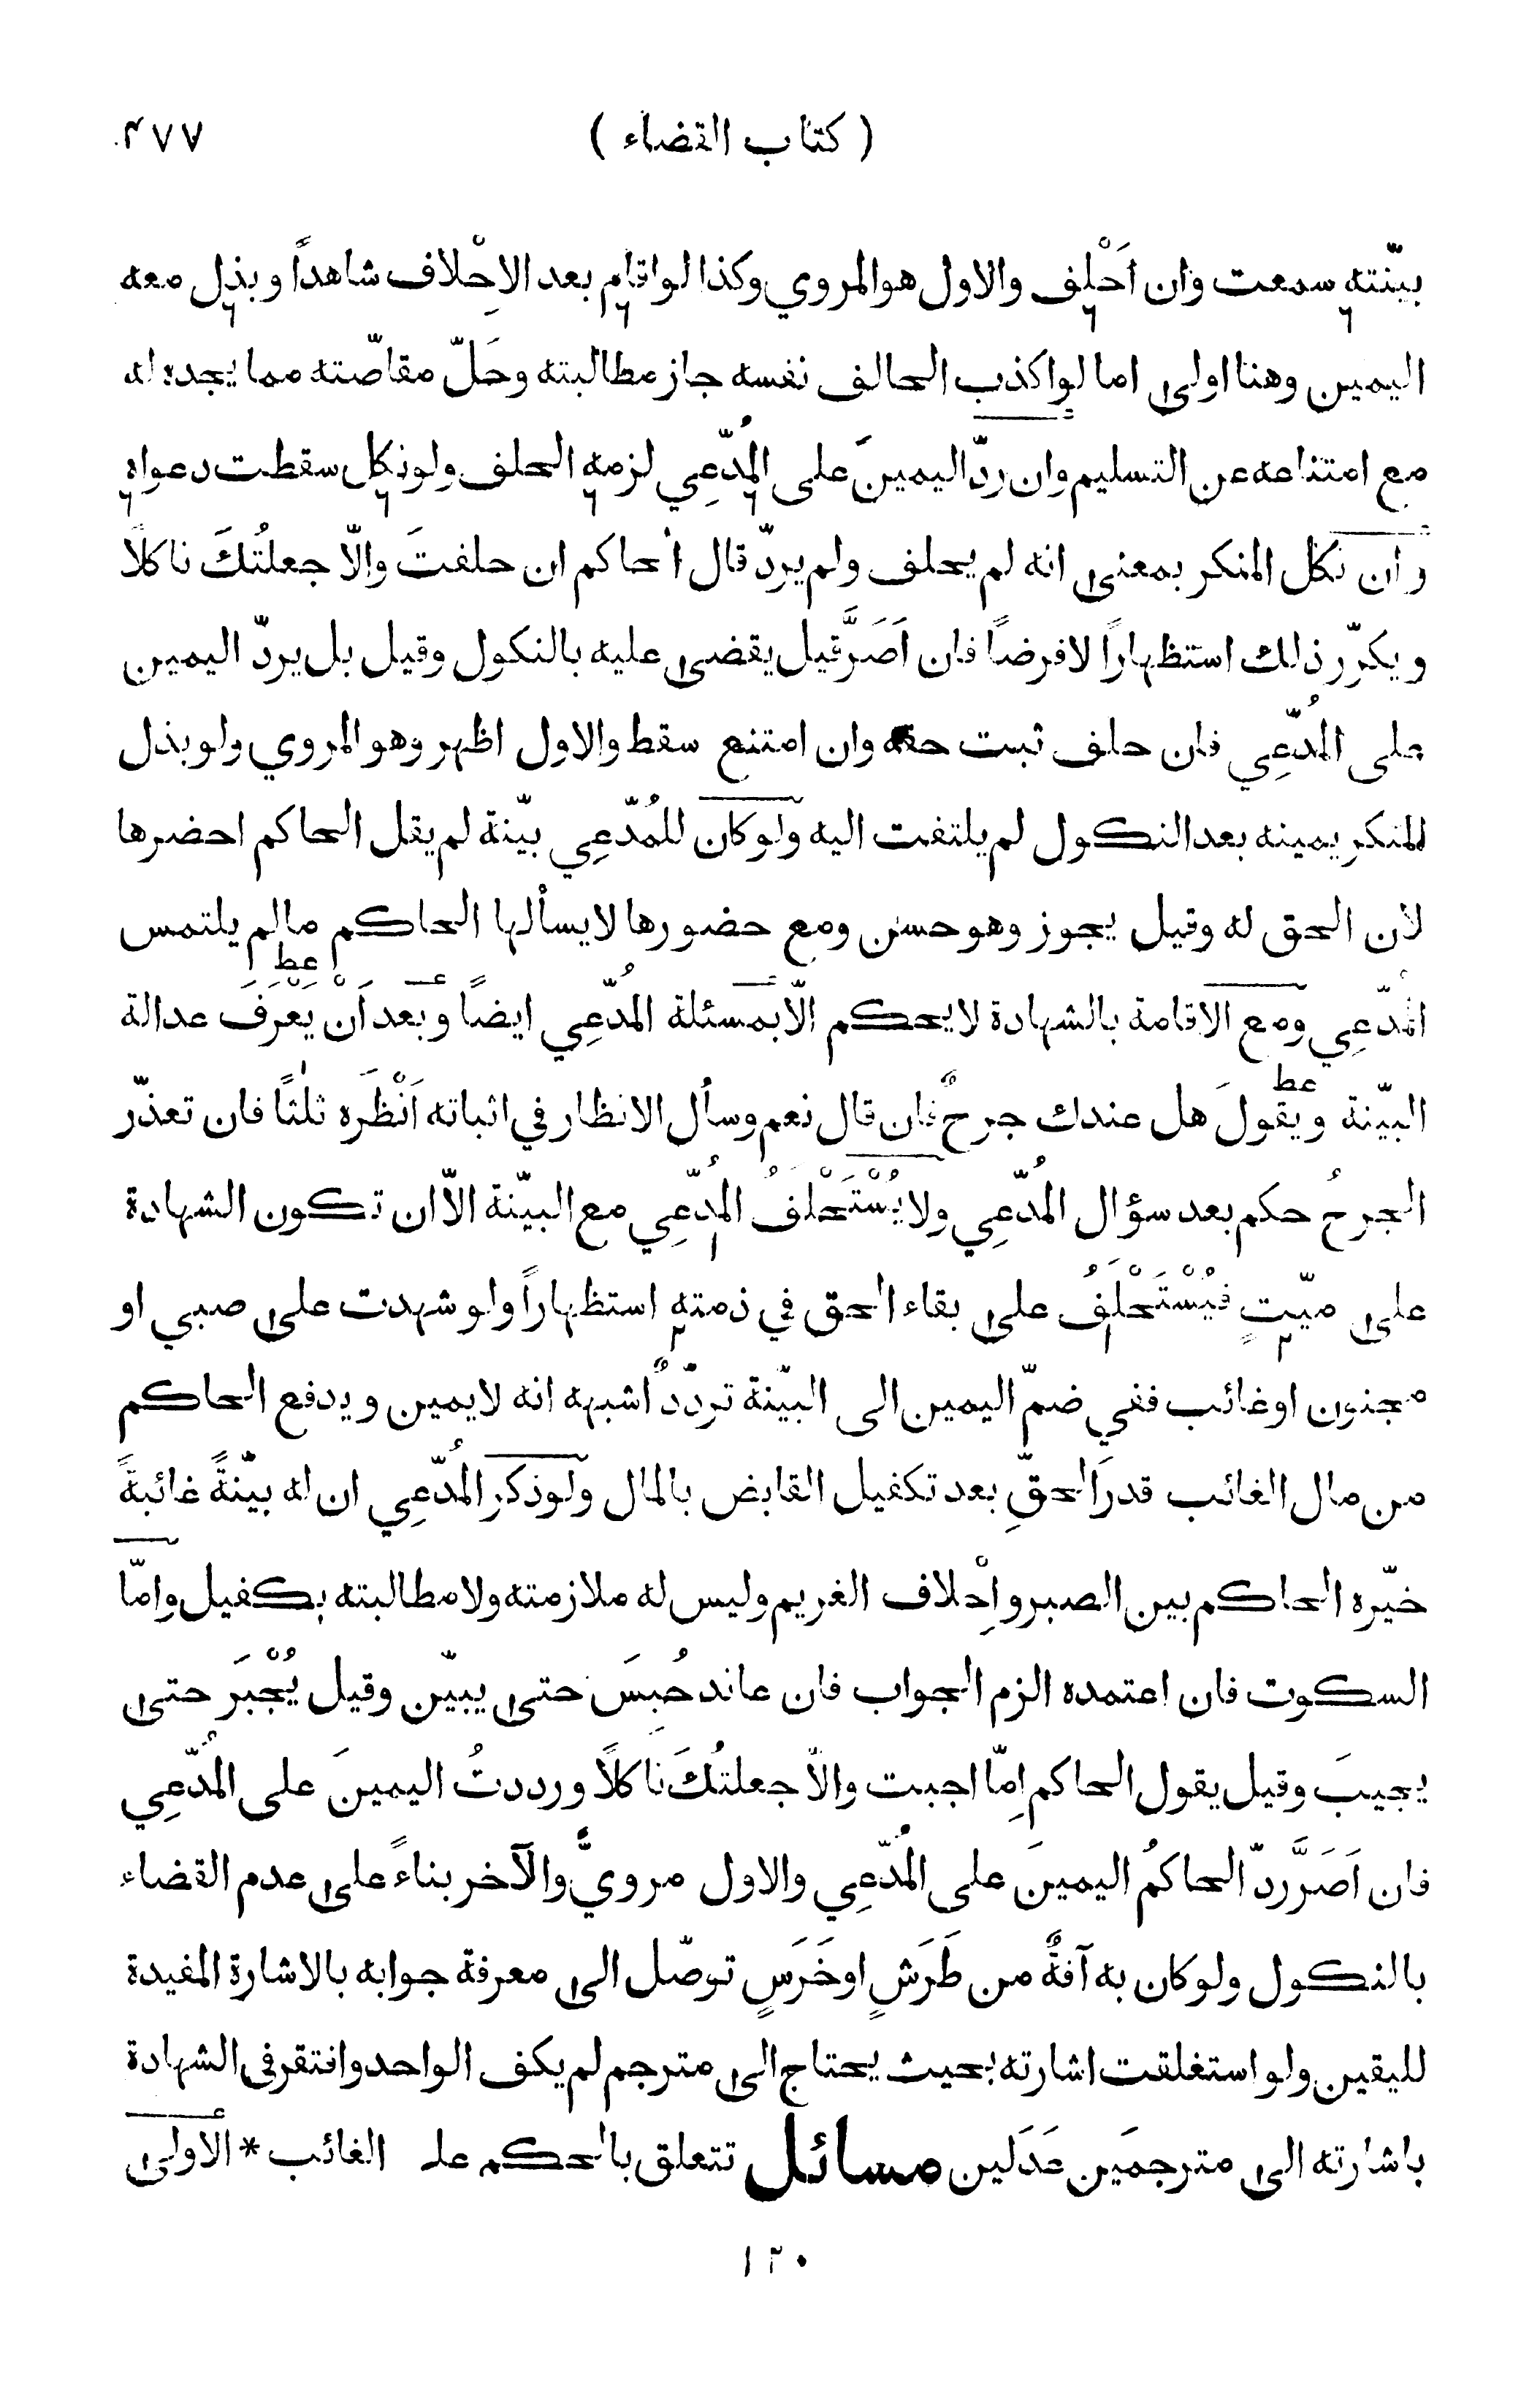 ( كتاب القضاء ) ٤٧٧
بيّنته سمعت وان اَحْلِف والاول هو المروي وكذا لو اقام بعد الاحِْلاف شاهداً وبذل معه
اليمين وهنا اولى اما لو اكذب الحالف نفسه جاز مطالبته وحَلّ مقاصّته مما يجده له
مع امتناعه عن التسليم وان ردّ اليمينَ على المُدّعِي لزمه الحلف ولو نكل سقطت دعواه
وان نكَل المنكر بمعنى انه لم يحلف ولم يردّ قال الحاكم ان حلفتَ والّا جعلتُكَ ناكلًا
ويكرّر ذلك استظهاراً لا فرضاً فان اَصَرَّ قيل يقضى عليه بالنكول وقيل بل يردّ اليمين
على المُدّعِي فان حلف ثبت حقه وان امتنع سقط والاول اظهر وهو المروي ولو بذل
المنكر يمينه بعد النكول لم يلتفت اليه ولو كان للمُدّعِي بيّنة لم يقل الحاكم احضرها
لان الحق له وقيل يجوز وهو حسن ومع حضورها لا يسألها الحاكم مالم يلتمس
المُدّعِي ومع الاقامة بالشهادة لا يحكم الّا بمسئلة المُدّعِي ايضاً وبعد اَنْ يَعْرَفَ عدالة
البيّنة ويقولَ هل عندك جرحٌ فان قال نعم وسأل الانظار في اثباته اَنْظَرَه ثلٰثاً فان تعذّر
الجرحُ حكم بعد سؤال المُدّعِي ولا يُسْتَحْلَفُ المُدّعِي مع البيّنة الاّ ان تكون الشهادة
على ميّتٍ فيُسْتَحْلَفُ على بقاء الحق في ذمته استظهاراً ولو شهدت على صبي او
مجنون او غائب ففي ضمّ اليمين الى البيّنة تردّدٌ اشبهه انه لا يمين ويدفع الحاكم
من مال الغائب قدرَ الحقِّ بعد تكفيل القابض بالمال ولو ذكر المُدّعِي ان له بيّنةً غائبةً
خيّره الحاكم بين الصبر واِحْلاف الغريم وليس له ملازمته ولا مطالبته بكفيل وامّا
السكوت فان اعتمده الزم الجواب فان عاند حُبِسَ حتى يبيّن وقيل يُجْبَرَ حتى
يجيبَ وقيل يقول الحاكم اِمّا اجبت والاّ جعلتُكَ ناكلًا ورددتُ اليمينَ على المُدّعِي
فان اَصَرَّ ردّ الحاكمُ اليمينَ على المُدّعِي والاول مرويٌّ والآخر بناءً على عدم القضاء
بالنكول ولو كان به آفةٌ من طَرَشٍ او خَرَسٍ توصّل الى معرفة جوابه بالاشارة المفيدة
لليقين ولو استغلقت اشارته بحيث يحتاج الى مترجم لم يكف الواحد وافتقر في الشهادة
باشارته الى مترجمَين عَدَلين مسائل تتعلق بالحكم على الغائب * الأولى
١٢٠